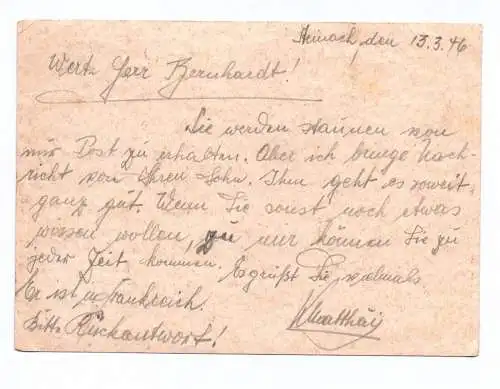 den 13.3.46
Wert. Herr Bernhardt!
Sie werden staunen von
mir Post zu erhalten. Aber ich bringe Nach-
richt von Ihren Sohn. Ihm geht es soweit
ganz gut. Wenn Sie sonst noch etwas
wissen wollen, zu mir können Sie zu
jeder Zeit kommen. Es grüßt Sie vielmals
Er ist in Frankreich.
Bitte Rückantwort!